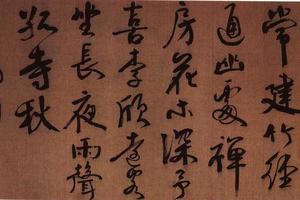 常建竹徑
通幽處禪
房花木深予
喜李頎遠客
坐長夜雨聲
孤寺秋